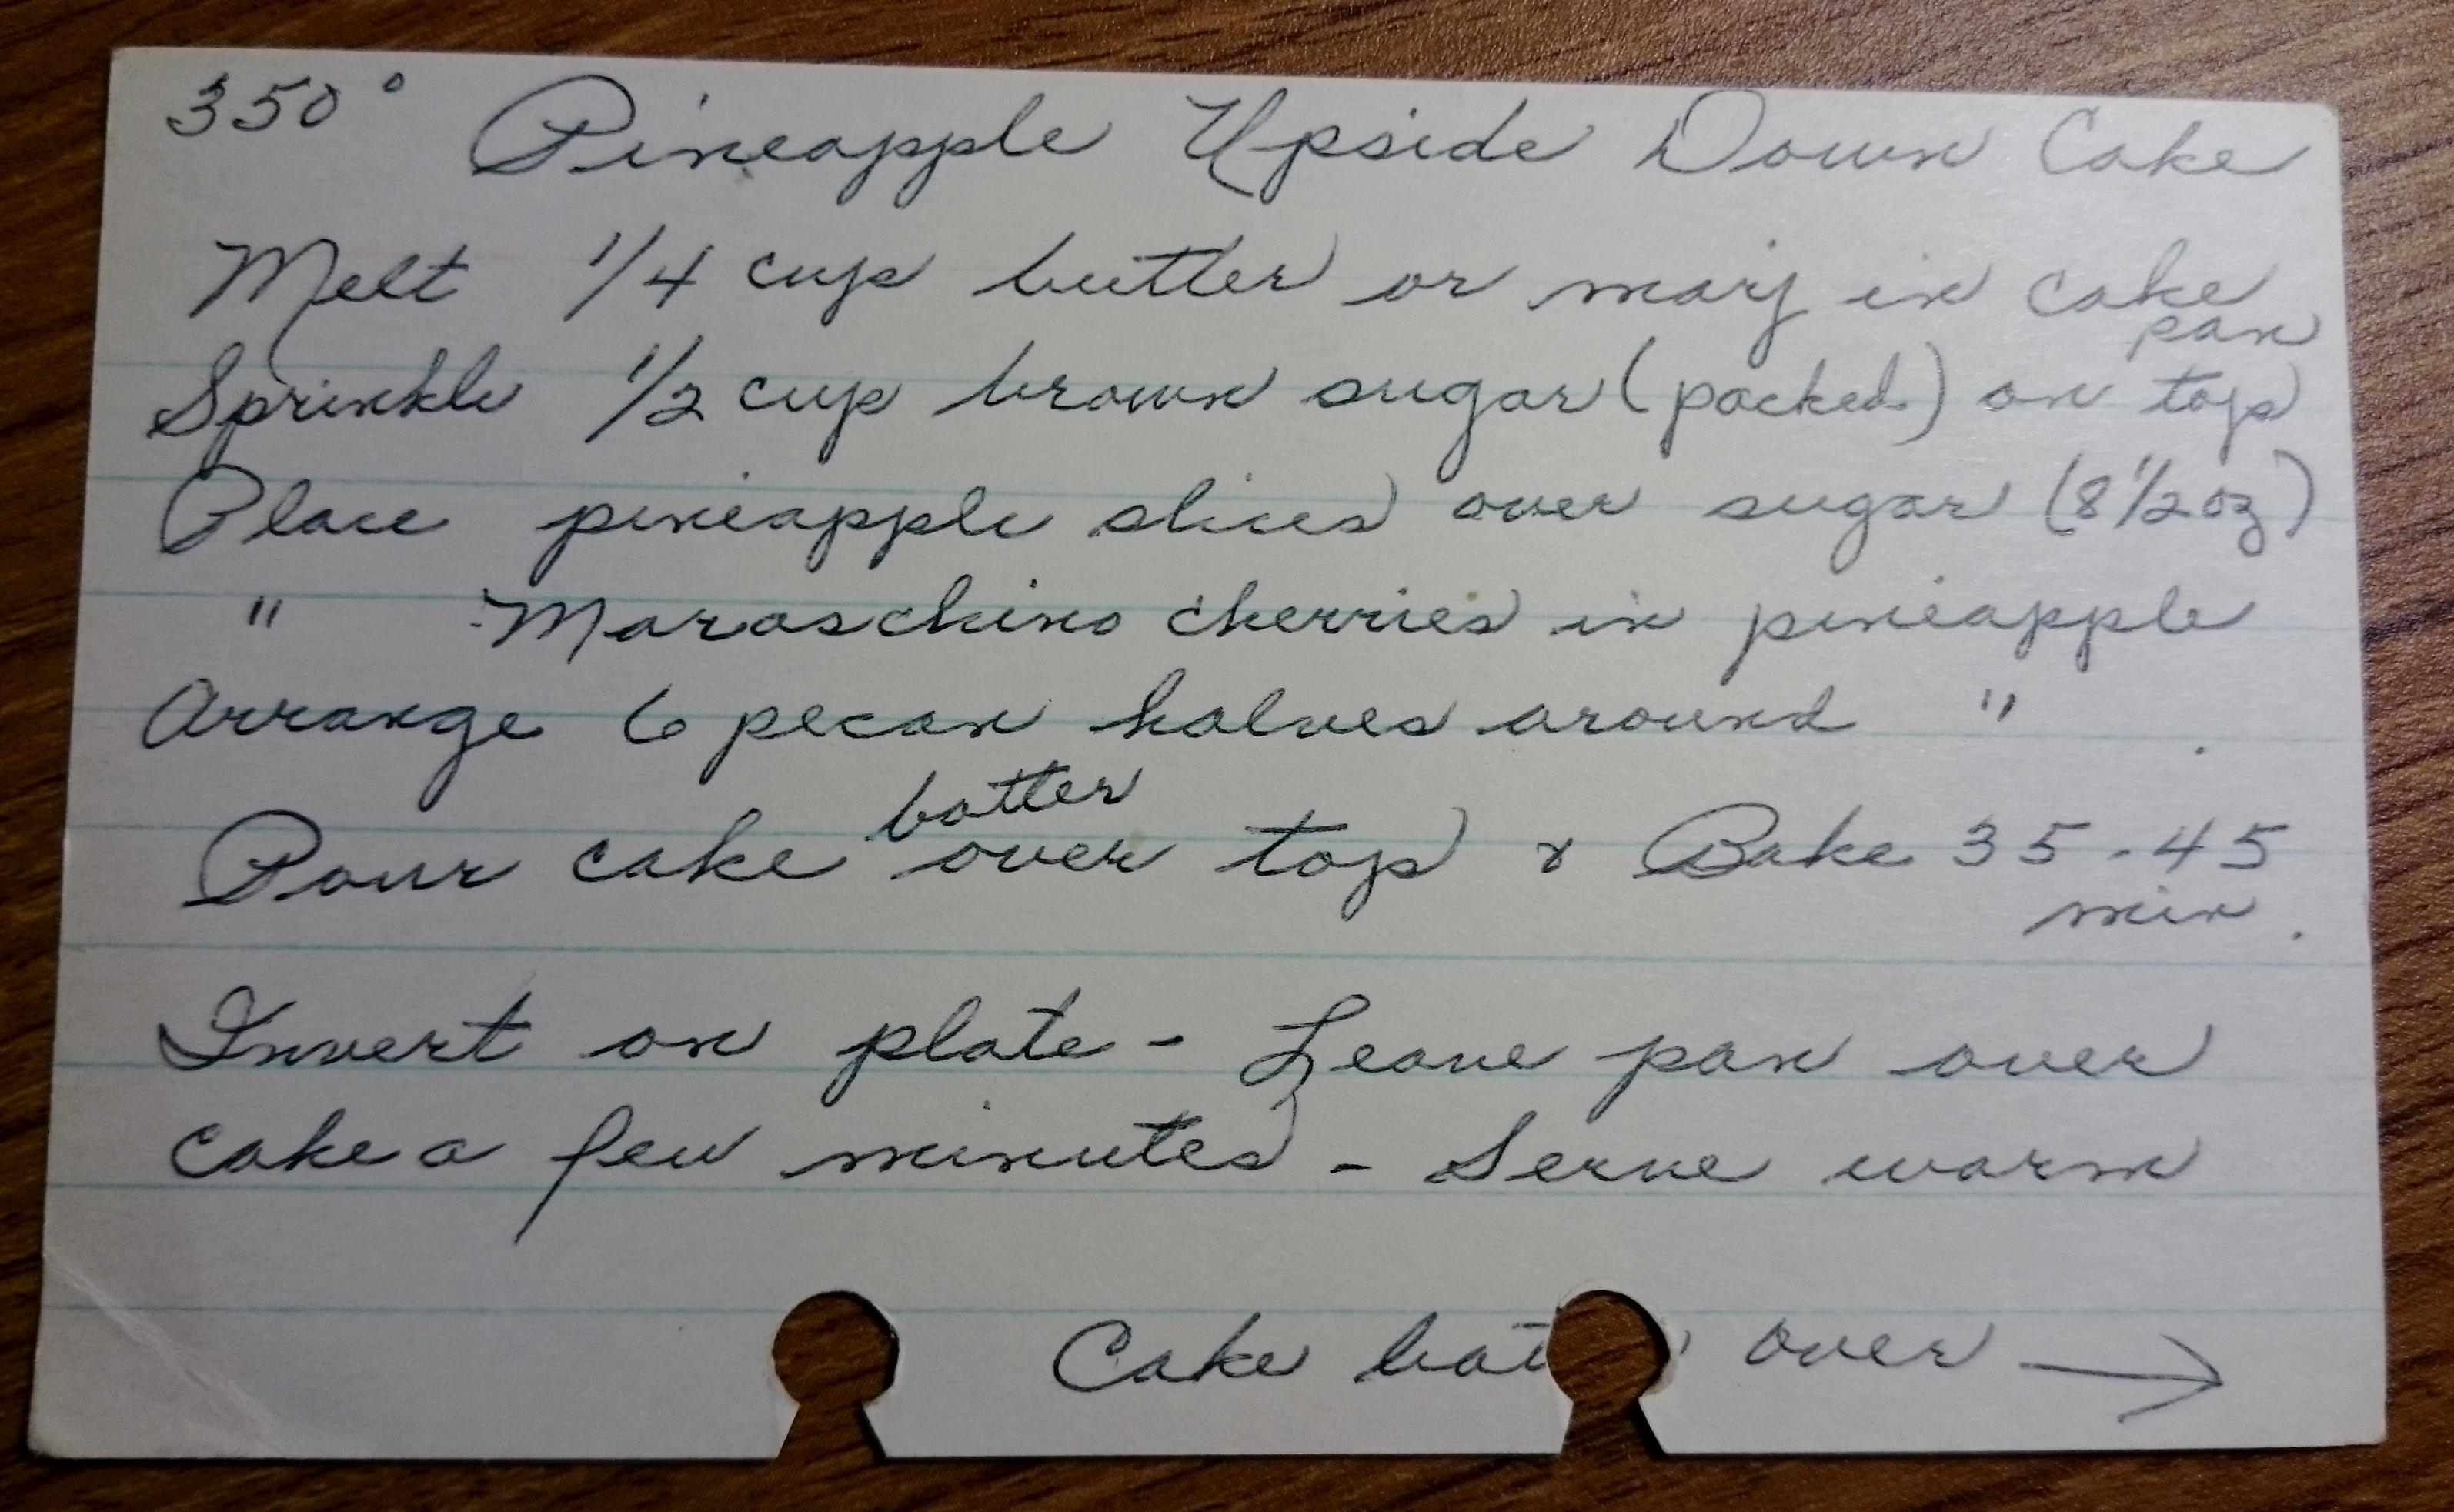 350° Pineapple Upside Down Cake
Melt 1/4 cup butter or marj in cake
pan
Sprinkle 1/2 cup brown sugar (packed) on top
Place pineapple slices over sugar (8 1/2 oz)
" Maraschino cherries in pineapple
Arrange 6 pecan halves around " .
batter
Pour cake over top & Bake 35-45
min.
Invert on plate - Leave pan over
cake a few minutes - Serve warm
Cake over →